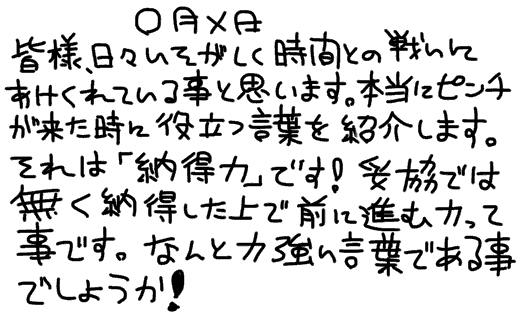 〇月×日
皆様、日々いそがしく時間との戦いに
あけくれている事と思います。本当にピンチ
が来た時に役立つ言葉を紹介します。
それは「納得力」です!妥協では
無く納得した上で前に進む力って
事です。なんと力強い言葉である事
でしょうか!